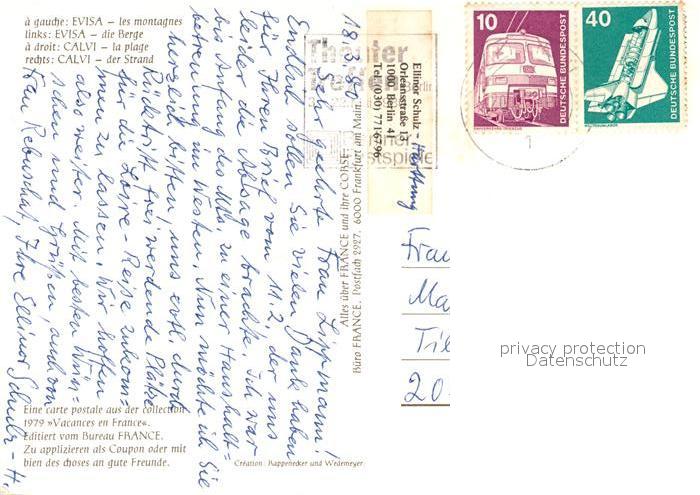 à gauche: EVISA – les montagnes
links: EVISA – die Berge
à droit: CALVI – la plage
rechts: CALVI – der Strand
18.3.
Sehr geehrte Frau Lippmann!
Endlich sollen Sie vielen Dank haben
für Ihren Brief vom 11.2., der uns
leider die Absage brachte. Ich war
bis Anfang des Mts. zu einer Haushalt=
betreuung im Westen. Nun möchte ich Sie
herzlich bitten, uns evtl. durch
Rücktritt frei werdende Plätze
für die Loire-Reise zukom=
men zu lassen. Wir hoffen
also weiter. Mit besten Wün=
schen und Grüßen, auch von
Frau Rebuschat, Ihre Ellinor Schulz-H.
Ellinor Schulz - Harttung
Orleansstraße 13
1000 Berlin 41
Tel. (030) 771 67 96
Alles über FRANCE und ihre CORSE
Büro FRANCE, Postfach 2927, 6000 Frankfurt am Main
10
DEUTSCHE BUNDESPOST
40
DEUTSCHE BUNDESPOST
1
Frau
Ma
20
privacy protection
Datenschutz
Eine carte postale aus der collection
1979 »Vacances en France«.
Editiert vom Bureau FRANCE.
Zu applizieren als Coupon oder mit
bien des choses an gute Freunde.
Création: Rappenecker und Wedemeyer